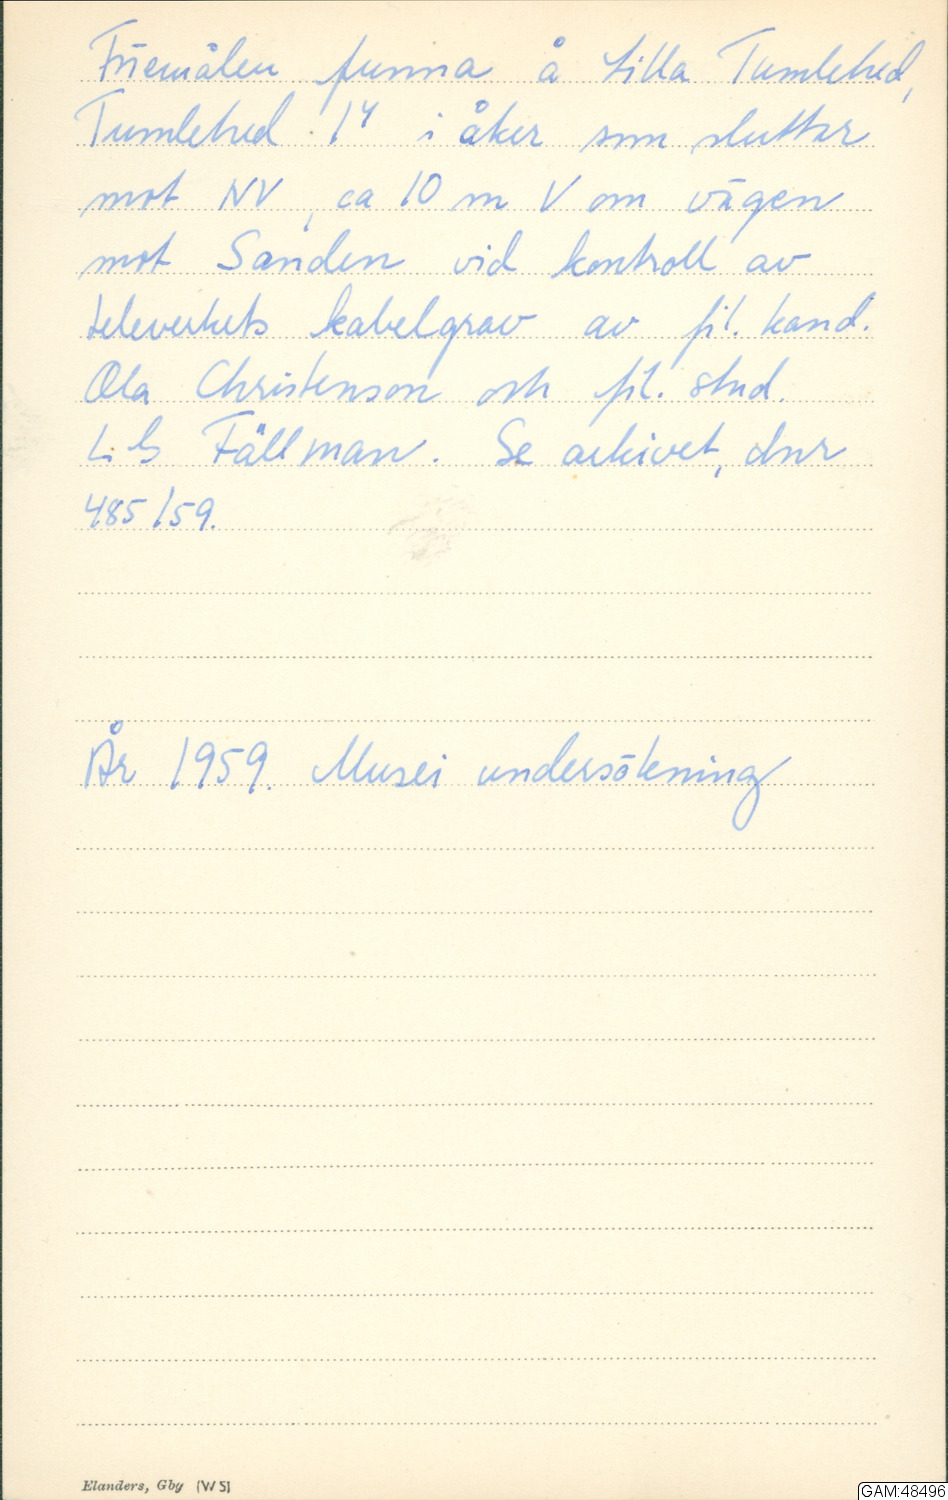 Föremålen funna å Lilla Tumlehed,
Tumlehed 1⁴ i åker som sluttar
mot NV, ca 10 m V om vägen
mot Sanden vid kontroll av
televerkets kabelgrav av fil. kand.
Ola Christenson och fil. stud.
Fällman. Se arkivet, dnr
485/59.
År 1959. Musei undersökning
Elanders, Gby (W 5)
GAM:48496